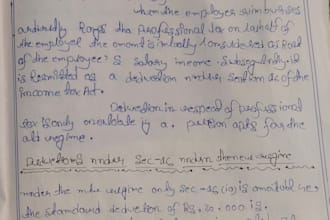 when the employer reimburses
or directly pays the professional tax on behalf of
the employee the amount is initially considered as part
of the employee's salary income. Subsequently it
is permitted as a deduction under section 16 of the
income tax Act.
Deduction in respect of professional
tax is only available if a person opts for the
old regime.
Deductions under Sec-16 under the new regime
under the new regime only sec-16 (ia) is available i.e
the standard deduction of RS. 000 is.